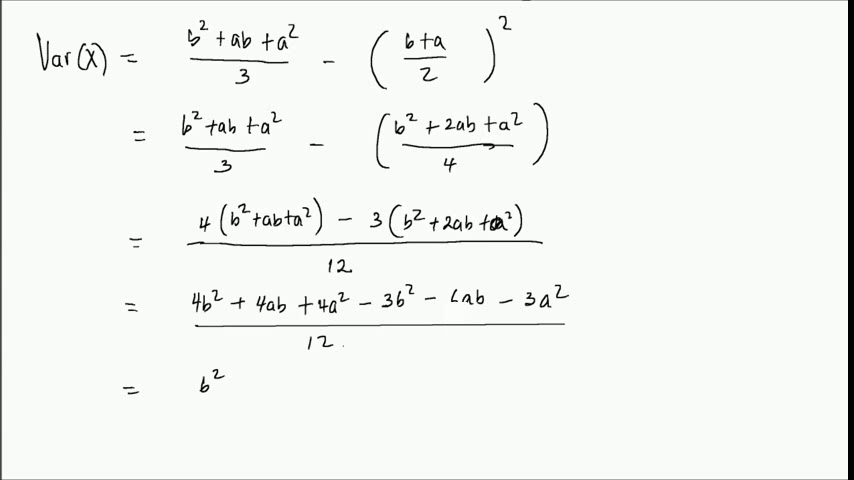 Var(X) = (b² + ab + a²)/3 - ((b+a)/2)²
= (b² + ab + a²)/3 - ((b² + 2ab + a²)/4)
= (4(b² + ab + a²) - 3(b² + 2ab + a²))/12
= (4b² + 4ab + 4a² - 3b² - ab - 3a²)/12
= b²